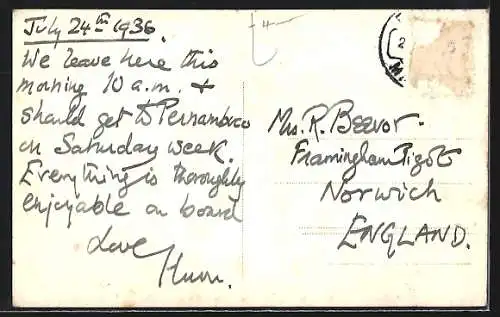 July 24th 1936.
We leave here this
morning 10 a.m. +
should get to Pernambuco
on Saturday week.
Everything is thoroughly
enjoyable on board
Love
Mrs. R. Beevor
Framingham Pigot
Norwich
ENGLAND.